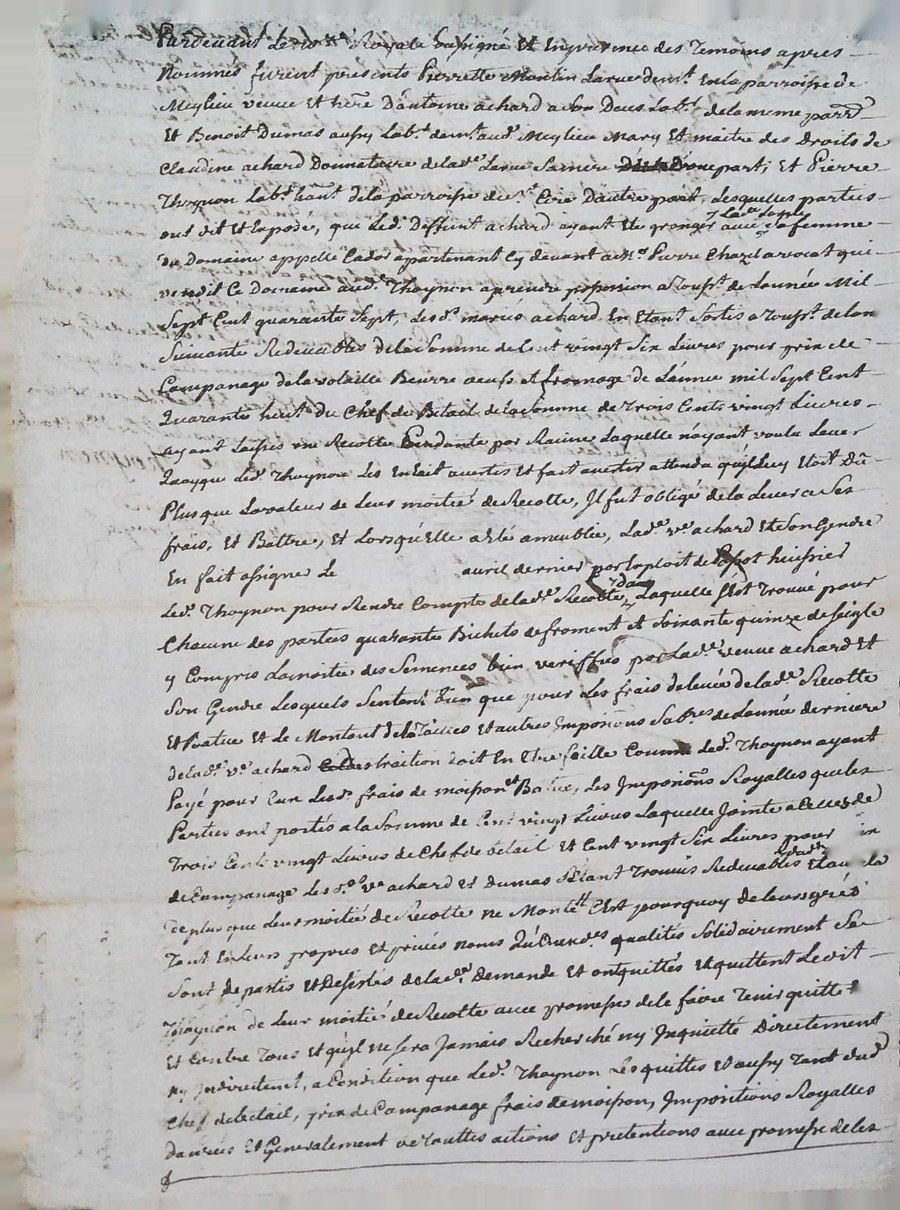 Pardevant le no.re Royale soussigné Et En presence des Temoins apres
Nommés furent presents Pierrette Montin Larue dem.t En la parroisse de
Meylieu veuve et here D'antoine achard a son Deces Lab.r de la meme parr.e
Et Benoit Dumas aussy Lab.r dem.t aud. Meylieu Mary Et maitre des Droits de
Claudine achard Donnataire de lad.e sa mere D'une part, Et Pierre
Thoynon Lab.r hant de la parroisse de St. Cire D'autre part, Lesquelles parties
ont dit Et Exposé, que Led. Deffunt achard ayant Eté granger avec sa femme
du Domaine appellé Cador apartenant Cy devant a Mr. Pierre Chazel avocat qui
vendit Ce Domaine aud. Thoynon a prendre possession a Touss.t de L'année Mil
Sept Cent quarante Sept, Les d. mariés achard En Etant Sortis a Touss.t de l'an
Suivante Redevables de la Somme de Cent vingt Six Livres pour prix de
Campanage de la volaille Beurre oeufs et fromage de L'année mil Sept Cent
Quarante huit du Chef de Betail de la Somme de Trois Cents vingt Livres
ayant Laissés une Recolte Pendante par Racine Laquelle n'ayant voulu Lever
Quoyque Led. Thoynon Les En ait avertis et fait avertir attendu qu'il Luy Etoit Dû
Plus que La valeur de Leur moitié de Recolte, Il fut obligé de la Lever a Ses
frais, Et Battre, et Lorsqu'Elle a Eté ameublie, Lad.e v.e achard Et Son Gendre
En fait assigner Le avril dernier par Exploit de Papot huissier
Led. Thoynon pour Rendre Compte de lad.e Recolte, Laquelle S'Est Trouvé pour
Chacune des parties quarante Bichets de froment et Soixante quinze de Seigle
y Compris La moitié des Semences bien veriffiés par Lad.e veuve achard Et
Son Gendre Lesquels Sentant bien que pour Les frais de levée de lad.e Recolte
Et Batue Et Le Montant de la Tailles et autres Imposions de L'année derniere
de lad.e v.e achard distraction doit En Etre faitte Comme Led. Thoynon ayant
Payé pour Eux Lesd. frais de moisson et Batue, Les Imposions Royalles que les
Parties ont portés a la Somme de Cent vingt Livres Laquelle Jointe a Celles de
Trois Cents vingt Livres de Chef de betail et Cent vingt Six Livres pour
de Campanage Les d. ve achard Et Dumas S'Etant Trouvés Redevables
de plus que Leur moitié de Recolte ne Monte C'Est pourquoy de leurs grés
Tant En Leurs propres Et privés noms qu'Auxd.es qualités Solidairement Se
Sont departis Et Desistés de lad.e Demande Et ont quittés Et quittent Ledit
Thoynon de Leur moitié de Recolte avec promesse de le faire Tenir quitte
Et Contre Tous Et qu'il ne Sera Jamais Recherché ny Inquietté Directement
ny Indirectem.t, a Condition que Led. Thoynon Les quitte Et aussy Tant dud.
Chef de betail, prix de Campanage frais de moisson, Impositions Royalles
Danrées Et Generalement de Touttes actions Et pretentions avec promesse de les